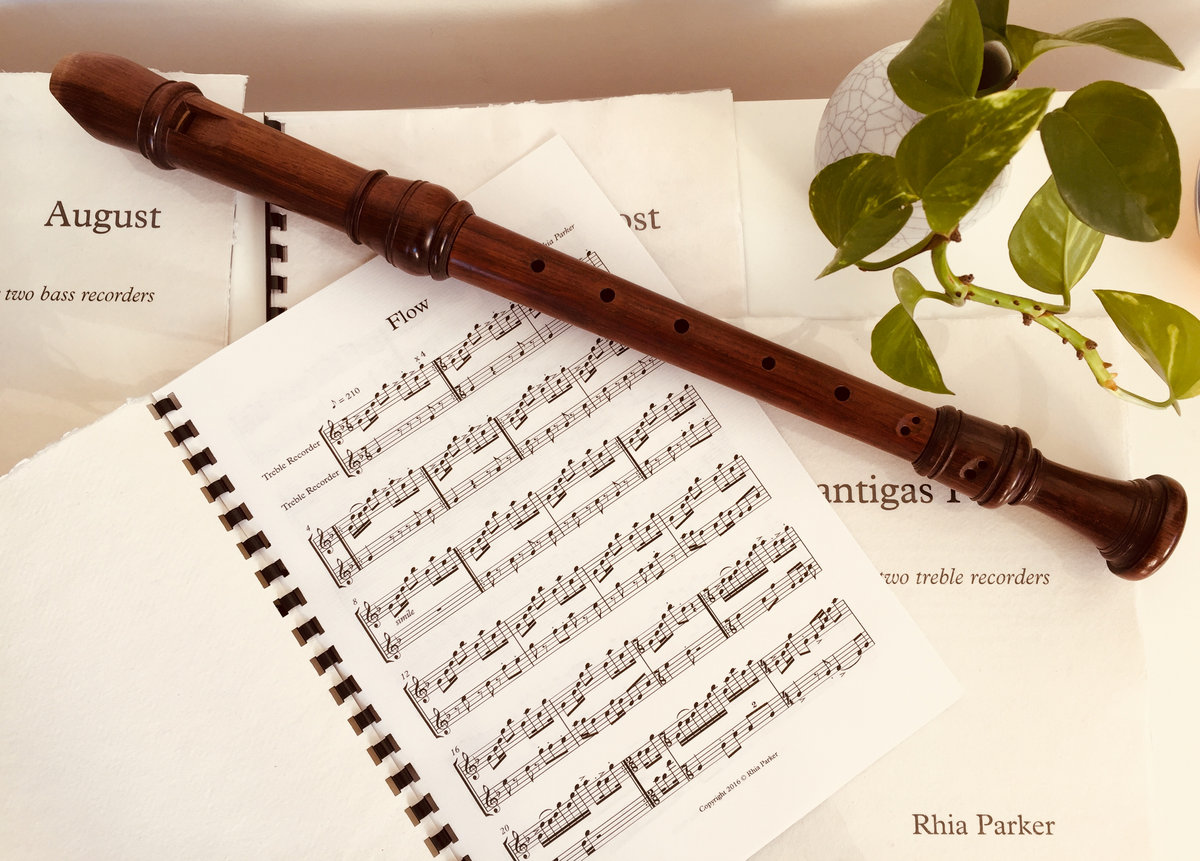 August
two bass recorders
ost
Rhia Parker
Flow
♪ = 210
x4
Treble Recorder
Treble Recorder
4
8
simile
12
16
2
20
Copyright 2016 © Rhia Parker
antigas
two treble recorders
Rhia Parker